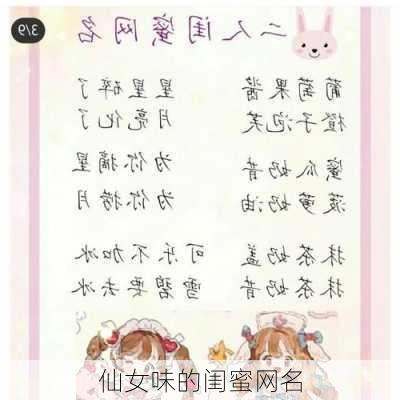 3/9
二人闺蜜网名
葡萄果酱 星星碎了
橙子泡芙 月亮化了
蜜瓜奶昔 为你摘星
菠萝奶油 为你捞月
抹茶奶盖 可乐不加冰
抹茶奶昔 雪碧要去冰
仙女味的闺蜜网名